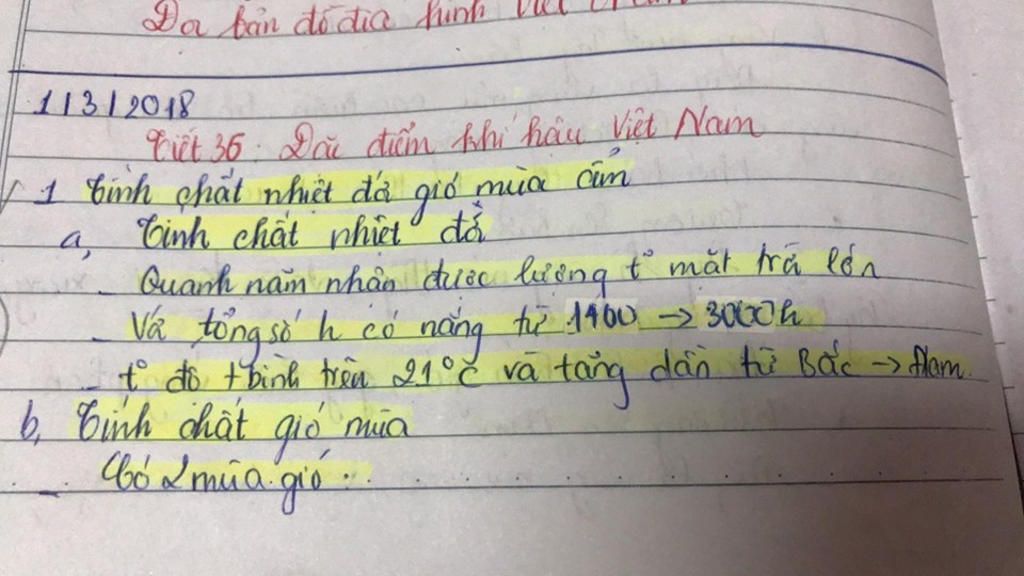 Dọc bản đồ địa hình Việt Nam
1/3/2018
Tiết 36. Đặc điểm khí hậu Việt Nam
1 Tính chất nhiệt đới gió mùa ẩm
a, Tính chất nhiệt đới
- Quanh năm nhận được lượng t° mặt trời lớn
- Và tổng số h có nắng từ 1400 → 3000h
- t° độ tbình trên 21°C và tăng dần từ Bắc → Nam
b, Tính chất gió mùa
- Có 2 mùa gió